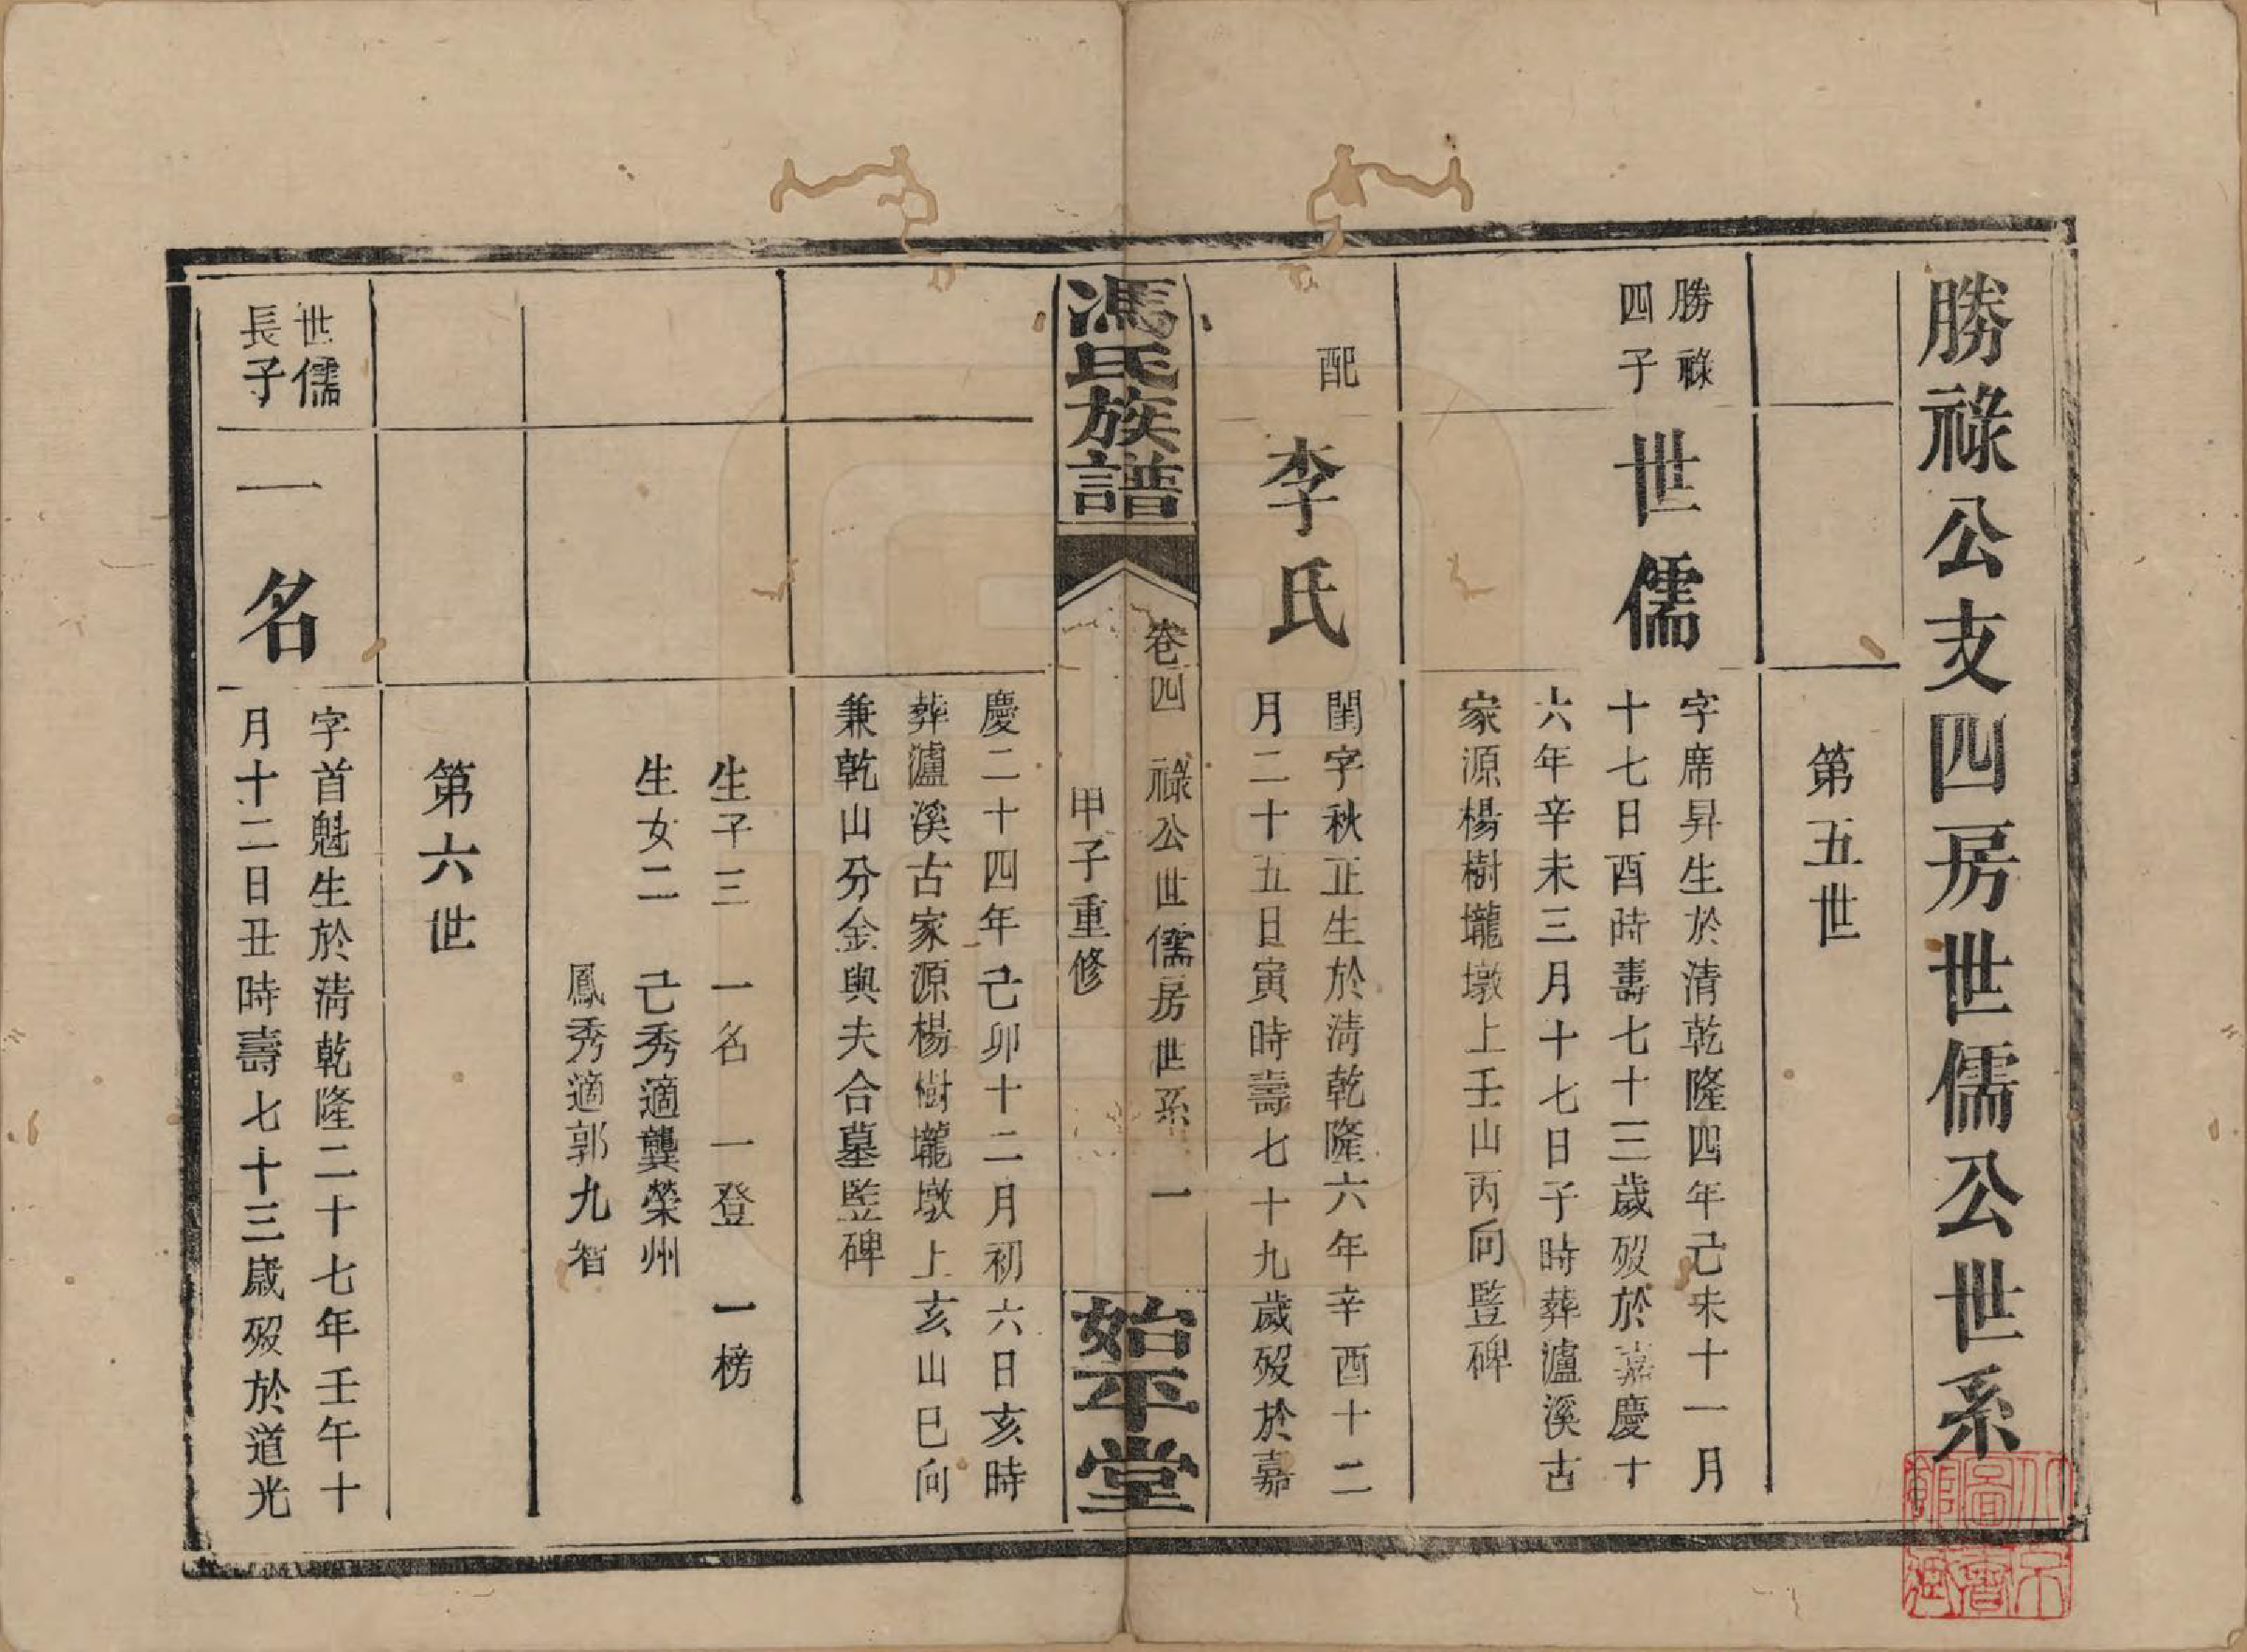 勝祿公支四房世儒公世系
第五世
勝祿
四子
世儒
字席昇生於清乾隆四年己未十一月
十七日酉時壽七十三歲歿於嘉慶十
六年辛未三月十七日子時葬瀘溪古
家源楊樹壠墩上壬山丙向監碑
配
李氏
閨字秋正生於清乾隆六年辛酉十二
月二十五日寅時壽七十九歲歿於嘉
馮氏族譜
卷四 祿公世儒房世系 一
甲子重修
始平堂
慶二十四年己卯十二月初六日亥時
葬瀘溪古家源楊樹壠墩上亥山巳向
兼乾山分金與夫合墓監碑
生子三 一名 一登 一榜
生女二 己秀適龔榮州
鳳秀適郭九智
第六世
世儒
長子
一名
字首魁生於清乾隆二十七年壬午十
月十二日丑時壽七十三歲歿於道光